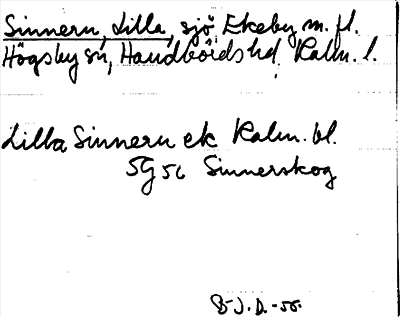 Sinnern, Lilla, sjö, Ekeby m. fl.
Högsby sn, Handbörds hd. Kalm. l.
Lilla Sinnern ek Kalm. bl.
5G 5c Sinnerskog
J. D. -58.